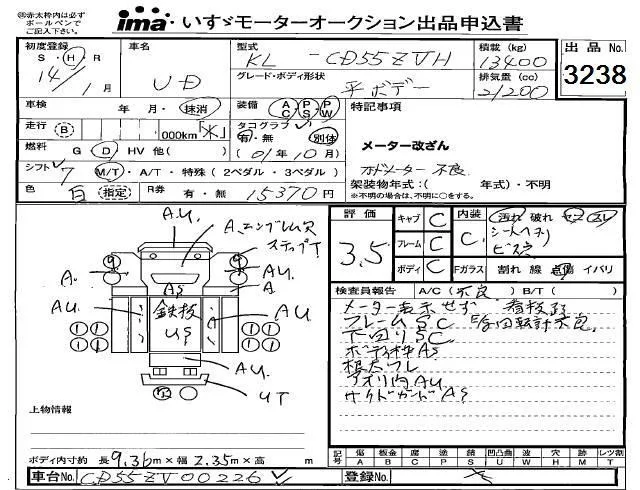 ㊟赤太枠内は必ず
ボールペンで
ご記入下さい。
ima いすゞモーターオークション出品申込書
初度登録 車名 型式 積載 (kg) 出品 No.
S・H・R UD KL - CD55ZVH 13400
14/1月 グレード・ボディ形状 排気量 (cc) 3238
平ボデー 21200
車検 年 月・抹消 装備 AC PS PW 特記事項
走行 B 000km タコグラフ 有・無 別体 メーター改ざん
燃料 G D HV 他( ) (01年10月) オドメーター不良
シフト 7 M/T・A/T・特殊 (2ペダル・3ペダル) 架装物年式:( 年式)・不明
色 白 指定 R券 有・無 15370円 ※不明の場合は、不明に○をする。
評価 3.5
キャブ C 内装 C 汚れ 破れ
フレーム C シートヘタリ
ボディ C Fガラス 割れ 線 点傷 イバリ
ビス穴
A.U. A.エンブレム欠
ステップT
A. AU A
AU AS 鉄板 US AU
AU.
UT
検査員報告 A/C (不良) B/T ( )
メーター表示せず 看板跡
フレームSC 回転計不良
下回りSC
ボディ枠AS
根太フレ
アオリ内AU
サイドガードAS
上物情報
ボディ内寸約 長 9.36m×幅 2.35m×高 m
記号 傷 板金 腐 塗 錆 凹凸曲 破 穴 跡 レツ割
A B C P S U W H M T
車台No. CD55ZV00226 登録No.